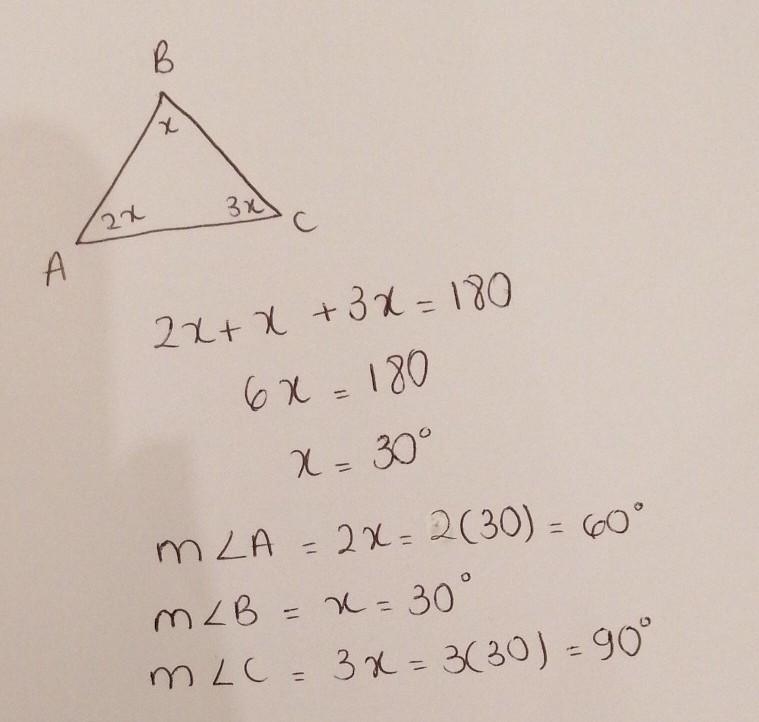 B
x
2x 3x
C
A
2x + x + 3x = 180
6x = 180
x = 30°
m∠A = 2x = 2(30) = 60°
m∠B = x = 30°
m∠C = 3x = 3(30) = 90°